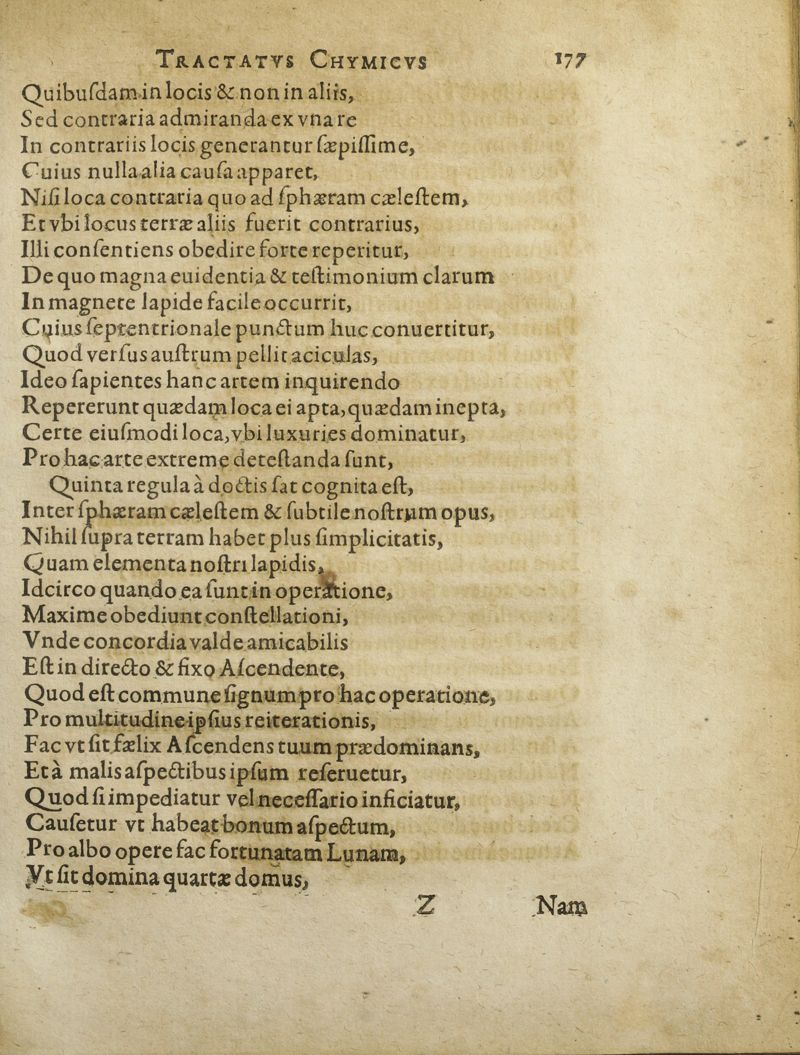 TRACTATVS CHYMICVS 177
Quibuſdam in locis & non in aliis,
Sed contraria admiranda ex vna re
In contrariis locis generantur ſæpiſſime,
Cuius nulla alia cauſa apparet,
Niſi loca contraria quo ad ſphæram cæleſtem,
Et vbi locus terræ aliis fuerit contrarius,
Illi conſentiens obedire forte reperitur,
De quo magna euidentia & teſtimonium clarum
In magnete lapide facile occurrit,
Cuius ſeptentrionale punctum huc conuertitur,
Quod verſus auſtrum pellit aciculas,
Ideo ſapientes hanc artem inquirendo
Repererunt quædam loca ei apta, quædam inepta,
Certe eiuſmodi loca, vbi luxuries dominatur,
Pro hac arte extreme deteſtanda ſunt,
Quinta regula à doctis ſat cognita eſt,
Inter ſphæram cæleſtem & ſubtile noſtrum opus,
Nihil ſupra terram habet plus ſimplicitatis,
Quam elementa noſtri lapidis,
Idcirco quando ea ſunt in operatione,
Maxime obediunt conſtellationi,
Vnde concordia valde amicabilis
Eſt in directo & fixo Aſcendente,
Quod eſt commune ſignum pro hac operatione,
Pro multitudine ipſius reiterationis,
Fac vt ſit fælix Aſcendens tuum prædominans,
Et à malis aſpectibus ipſum reſeruetur,
Quod ſi impediatur vel neceſſario inficiatur,
Cauſetur vt habeat bonum aſpectum,
Pro albo opere fac fortunatam Lunam,
Vt ſit domina quartæ domus,
Z Nam